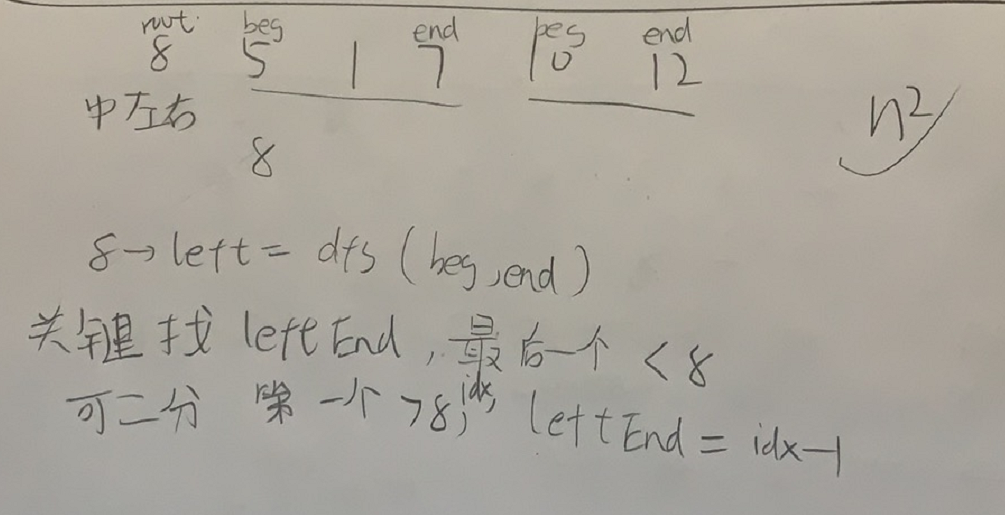 root beg end beg end
8 5 1 7 10 12
中左右 n²
8
8→left = dfs (beg,end)
关键找 leftEnd,最后一个 < 8
可二分 第一个 >8,idx, leftEnd = idx-1